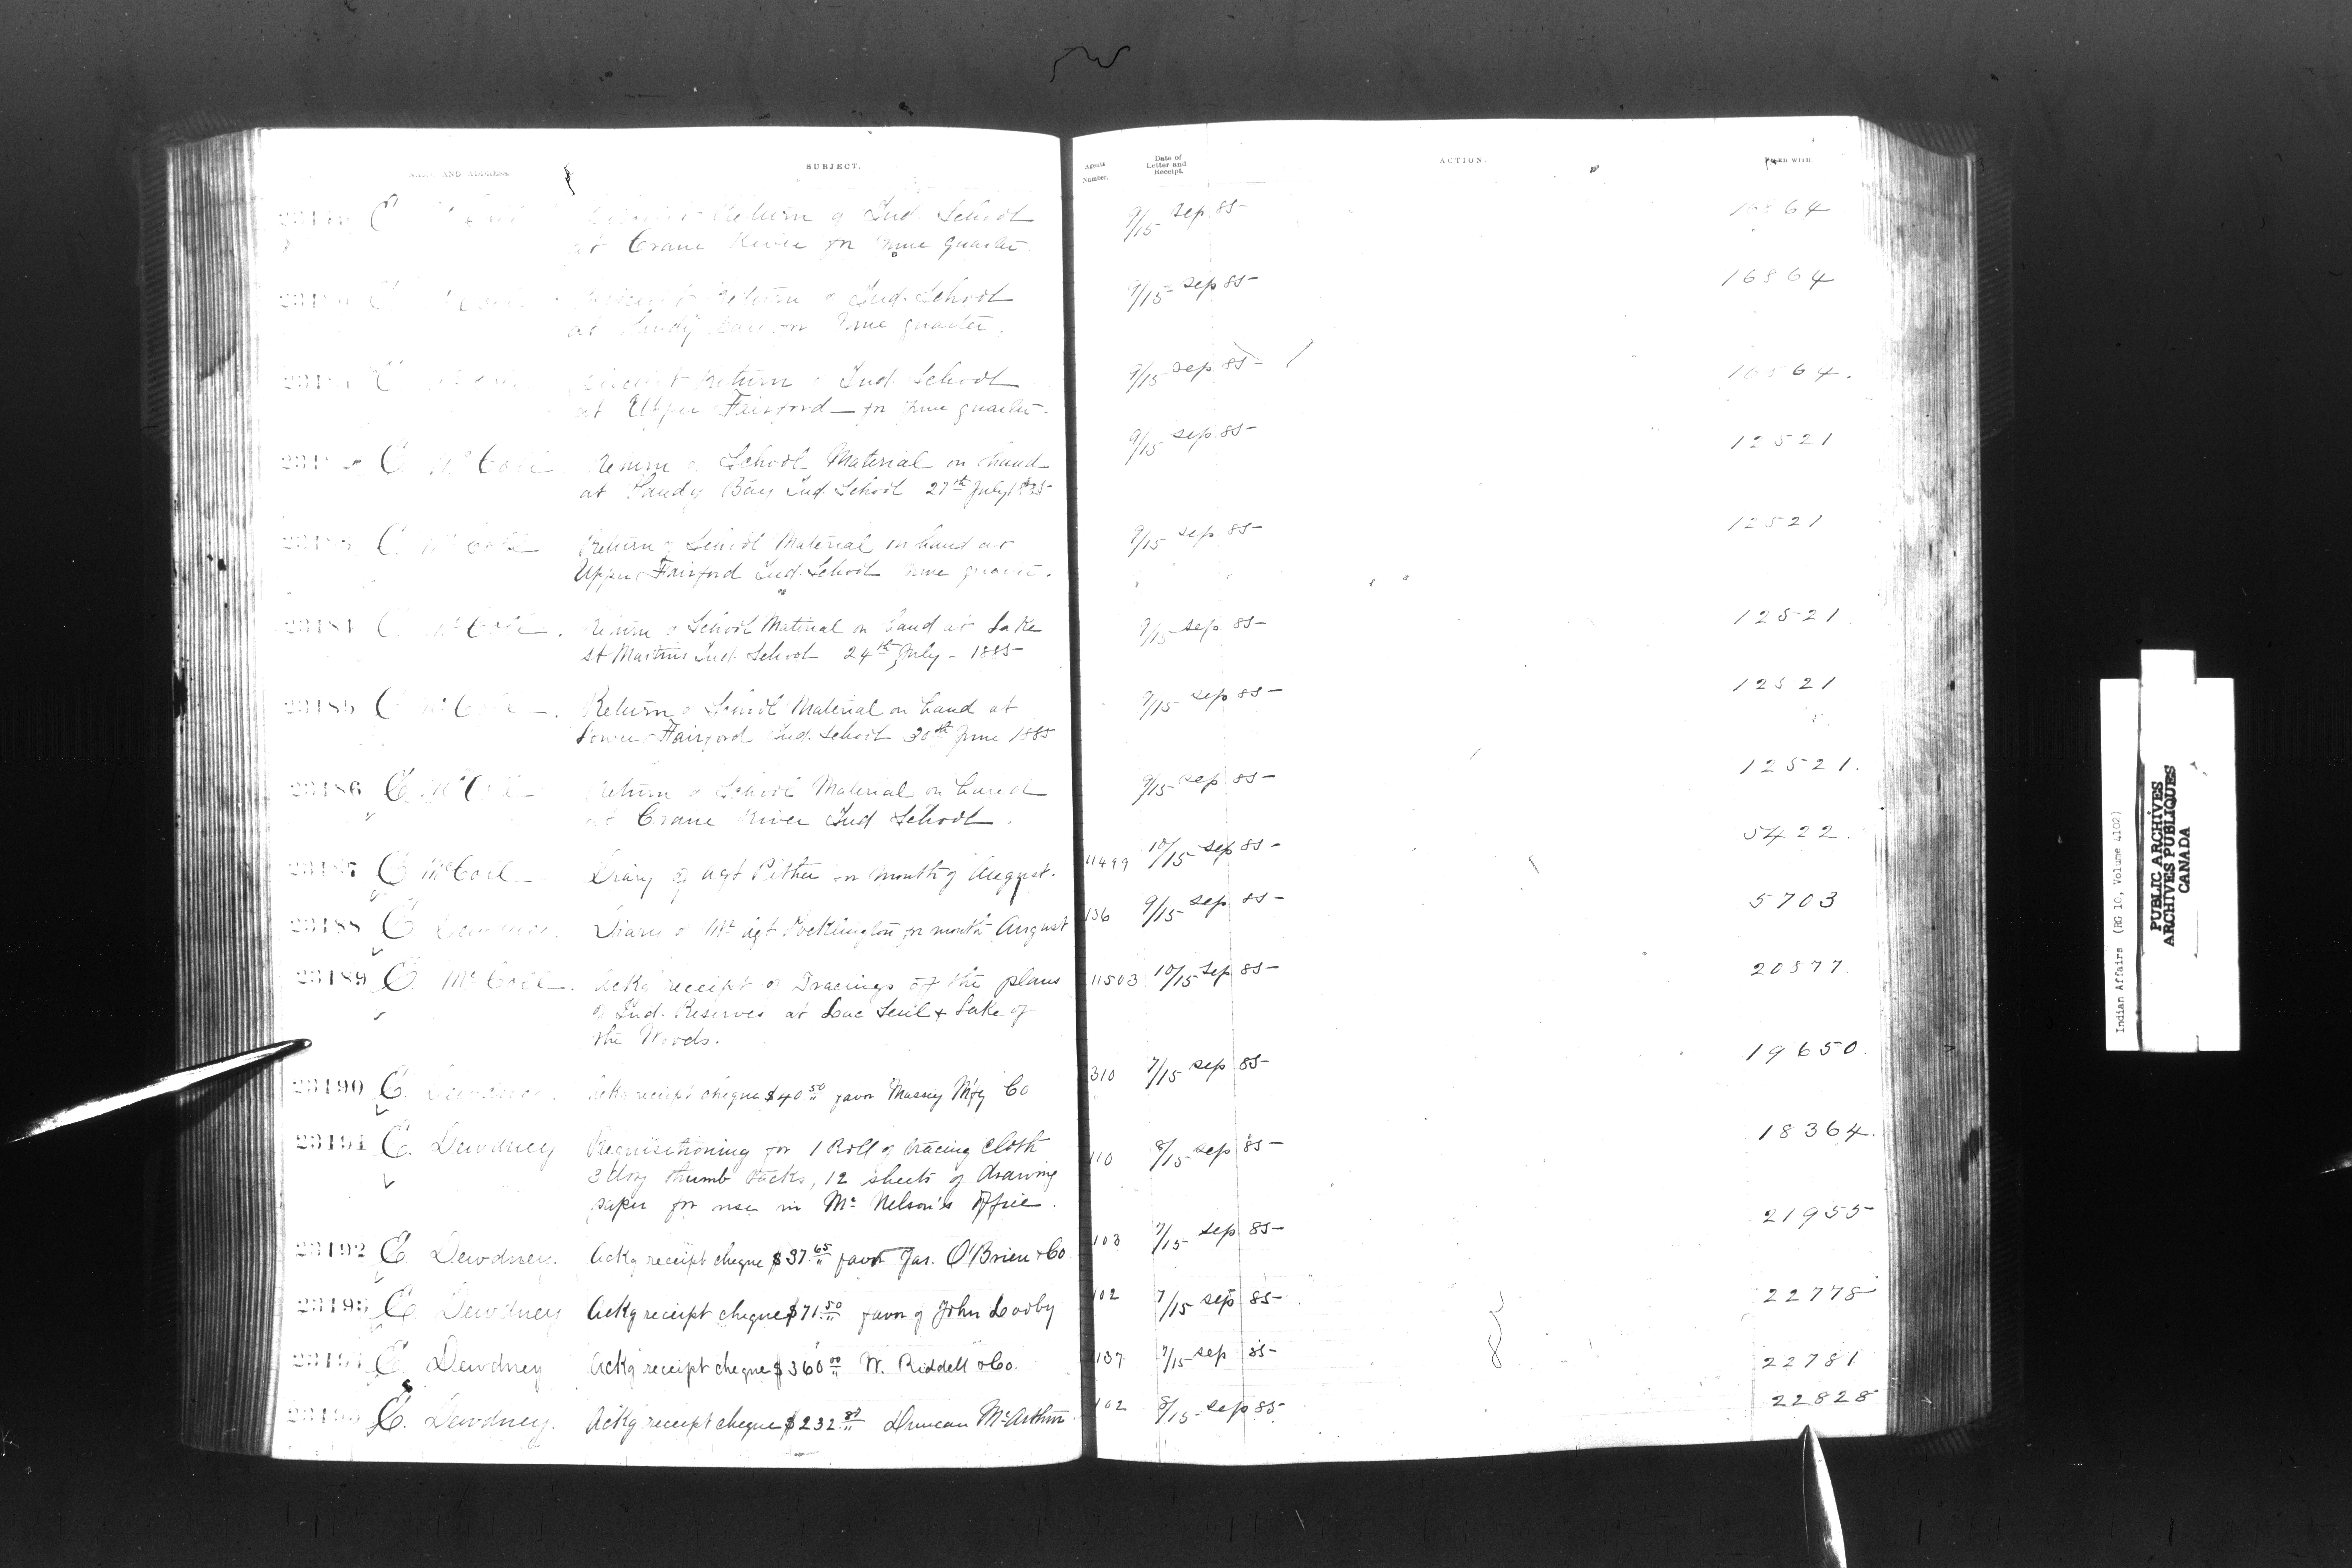 AND ADDRESS
SUBJECT.
Agents Number.
Date of Letter and Receipt.
ACTION.
FILED WITH
Return of Ind. School
at Crane River for June quarter.
9/15 Sep 85
16864
Return of Ind. School
at Sandy Bay for June quarter.
9/15 Sep 85
16864
Return of Ind. School
at Upper Fairford — for June quarter.
9/15 Sep 85
16864.
C McColl. Return of School Material on hand
at Sandy Bay Ind. School 27th July 1885
9/15 Sep 85
12521
C. McColl Return of School Material on hand at
Upper Fairford Ind. School June quarter.
9/15 Sep 85
12521
McColl. Return of School Material on hand at Lake
St Martins Ind. School 24th July - 1885
9/15 Sep 85
12521
23185 McColl. Return of School Material on hand at
Lower Fairford Ind. School 30th June 1885
9/15 Sep 85
12521
23186 E McColl Return of School Material on hand
at Crane River Ind School.
9/15 Sep 85
12521.
23187 E McColl Diary of Agt Pither for month of August.
11499 10/15 Sep 85
5422.
23188 E. Dewdney. Diary of Mr Agt Pocklington for month August
136 9/15 Sep 85
5703
23189 E. McColl. Ackg receipt of Tracings of the plans
of Ind. Reserves at Lac Seul & Lake of
the Woods.
11503 10/15 Sep 85
20577.
23190 E. Dewdney. Ackg receipt cheque $40 50 favor Massey Mfg Co
310 7/15 Sep 85
19650.
23191 E. Dewdney Requisitioning for 1 Roll of tracing cloth
3 doz thumb tacks, 12 sheets of drawing
paper for use in Mr Nelson's Office.
110 8/15 Sep 85
18364.
23192 E Dewdney. Ackg receipt cheque $37.65 favor Jas. O'Brien & Co
103 7/15 Sep 85
21955
23193 E. Dewdney Ackg receipt cheque $71.50 favor of John Looby
102 7/15 Sep 85
22778
E. Dewdney Ackg receipt cheque $360 00 W. Riddell & Co.
137 7/15 Sep 85
22781
E. Dewdney. Ackg receipt cheque $232 Duncan McArthur
102 8/15 Sep 85
22828
Indian Affairs (RG 10, Volume 4102)
PUBLIC ARCHIVES
ARCHIVES PUBLIQUES
CANADA